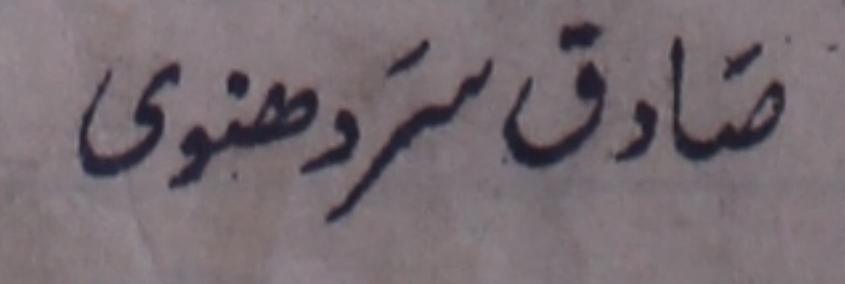 صَادق سَردھنوی